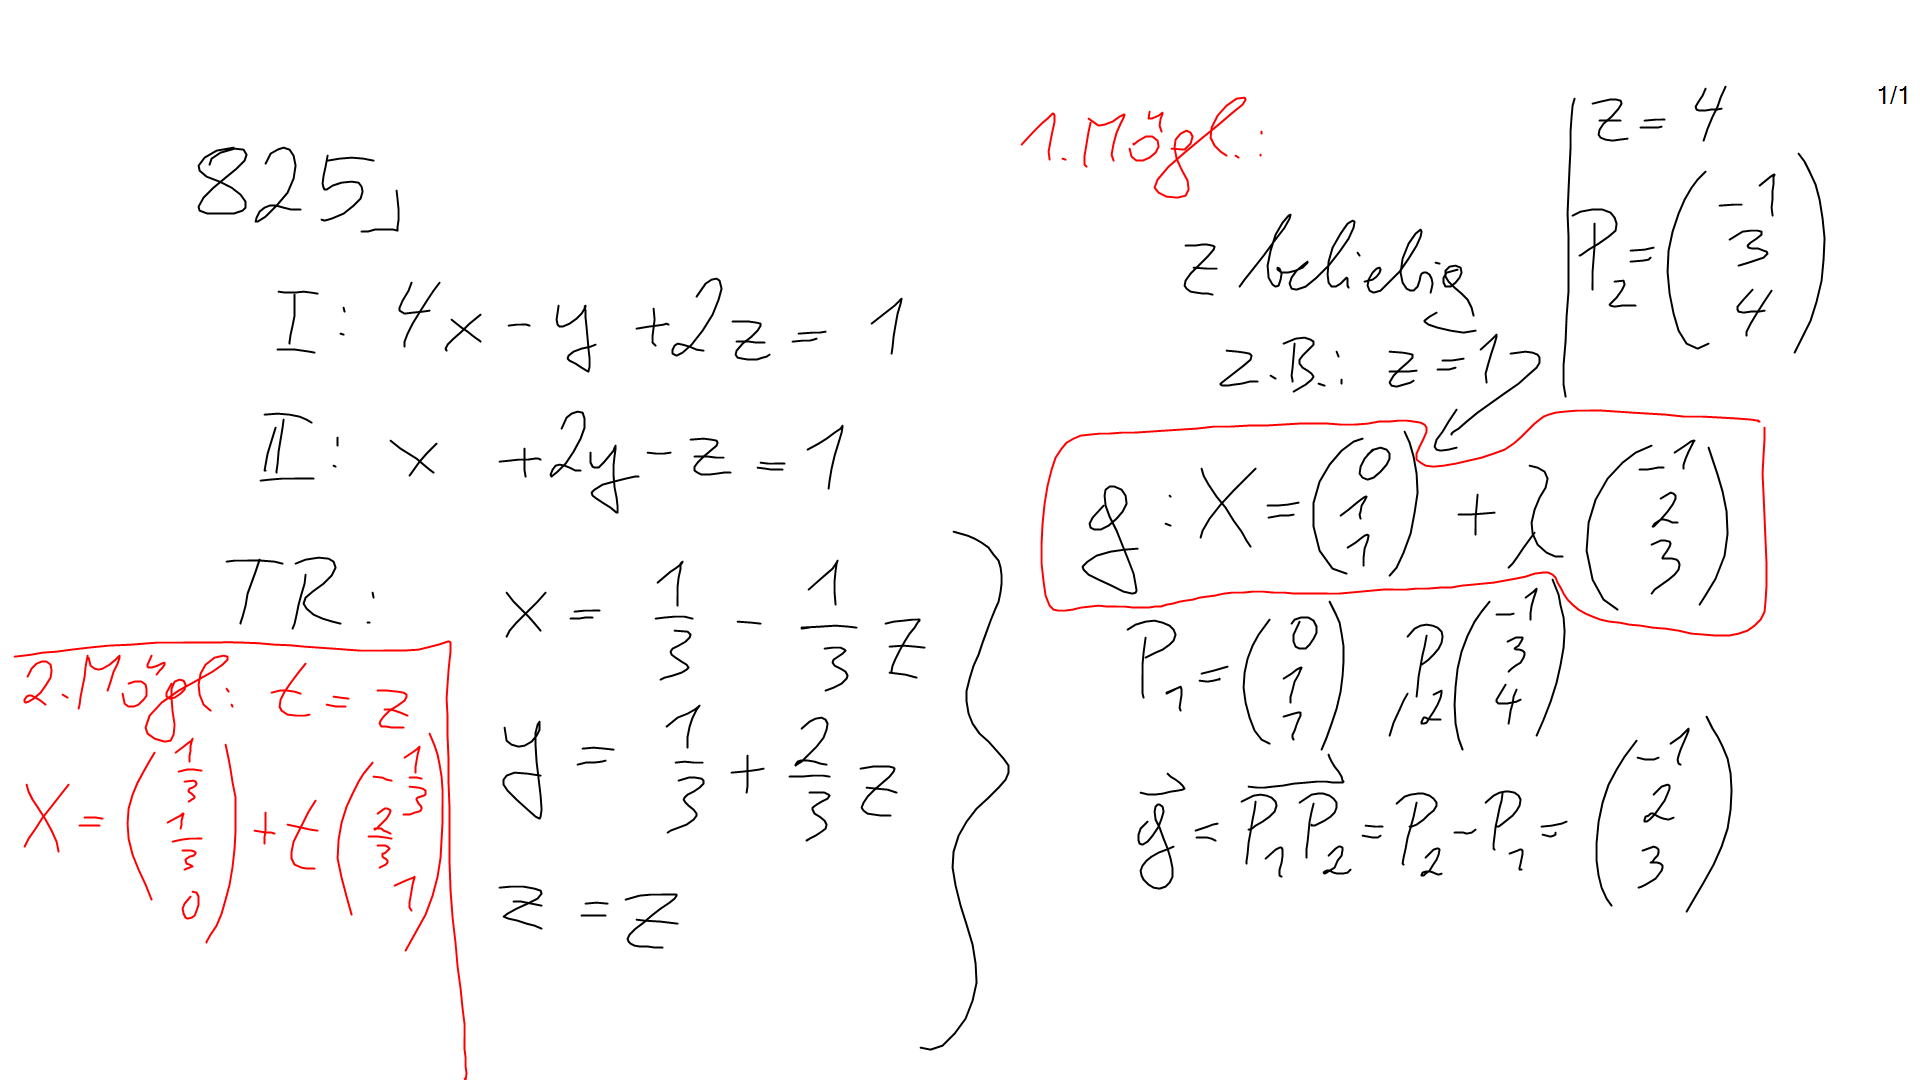 825」
I: 4x - y + 2z = 1
II: x + 2y - z = 1
TR: x = 1/3 - 1/3 z
y = 1/3 + 2/3 z
z = z
2. Mögl.: t = z
X = (1/3 1/3 0) + t (-1/3 2/3 1)
1. Mögl.:
z beliebig
z.B.: z = 1
z = 4
P2 = (-1 3 4)
g : X = (0 1 1) + λ (-1 2 3)
P1 = (0 1 1) , P2 (-1 3 4)
g⃗ = P1P2⃗ = P2 - P1 = (-1 2 3)
1/1